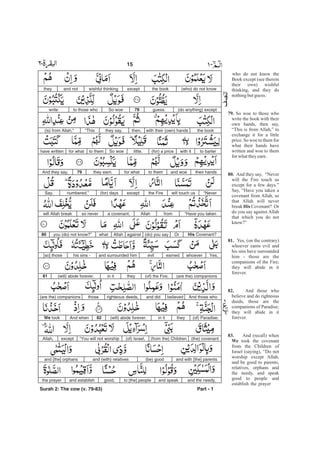 البقرة-٢ 15
they and not wishful thinking except the book (who) do not know
write to those who So woe 78 guess. (do anything) except
(is) from Allah," "This they say, then, with their (own) hands the book
have written for what to them So woe little. (for) a price with it to barter
And they say, 79 they earn. for what to them and woe their hands
Say, numbered." (for) days except the Fire will touch us "Never
will Allah break so never a covenant, Allah from "Have you taken
80 you (do) not know?" what Allah against (do) you say Or His Covenant?
[so] those his sins - and surrounded him evil earned whoever Yes,
81 (will) abide forever. in it they (of) the Fire; (are the) companions
(are the) companions those righteous deeds, and did believed And those who
We took And when 82 will abide forever. in it they (of) Paradise;
Allah, except "You will not worship (of) Israel, (from the) Children (the) covenant
and (the) orphans and (with) relatives (be) good and with [the] parents
the prayer and establish good, to [the] people and speak and the needy,
Surah 2: The cow (v. 79-83) Part - 1
who do not know the
Book except (see therein
their own) wishful
thinking, and they do
nothing but guess.
79. So woe to those who
write the book with their
own hands, then say,
"This is from Allah," to
exchange it for a little
price. So woe to them for
what their hands have
written and woe to them
for what they earn.
80. And they say, "Never
will the Fire touch us
except for a few days."
Say, "Have you taken a
covenant from Allah, so
that Allah will never
break His Covenant? Or
do you say against Allah
that which you do not
know?"
81. Yes, (on the contrary)
whoever earns evil and
his sins have surrounded
him - those are the
companions of the Fire;
they will abide in it
forever.
82. And those who
believe and do righteous
deeds, those are the
companions of Paradise;
they will abide in it
forever.
83. And (recall) when
We took the covenant
from the Children of
Israel (saying), "Do not
worship except Allah,
and be good to parents,
relatives, orphans and
the needy, and speak
good to people and
establish the prayer